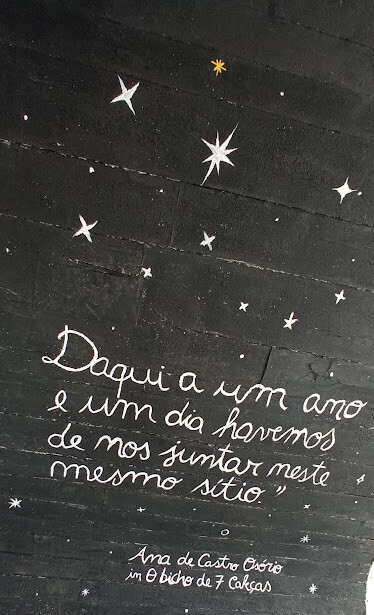 Daqui a um ano
e um dia havemos
de nos juntar neste
mesmo sítio"
Ana de Castro Osório
in O bicho de 7 Cabças